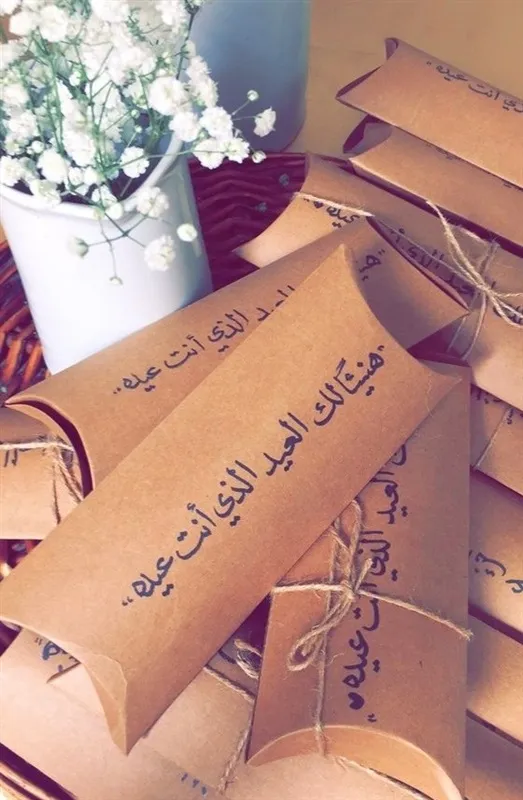 "هنيئاً لك العيد الذي أنت عيده"
العيد الذي أنت عيده"
العيد الذي أنت عيده ♥"
الذي أنت عيده